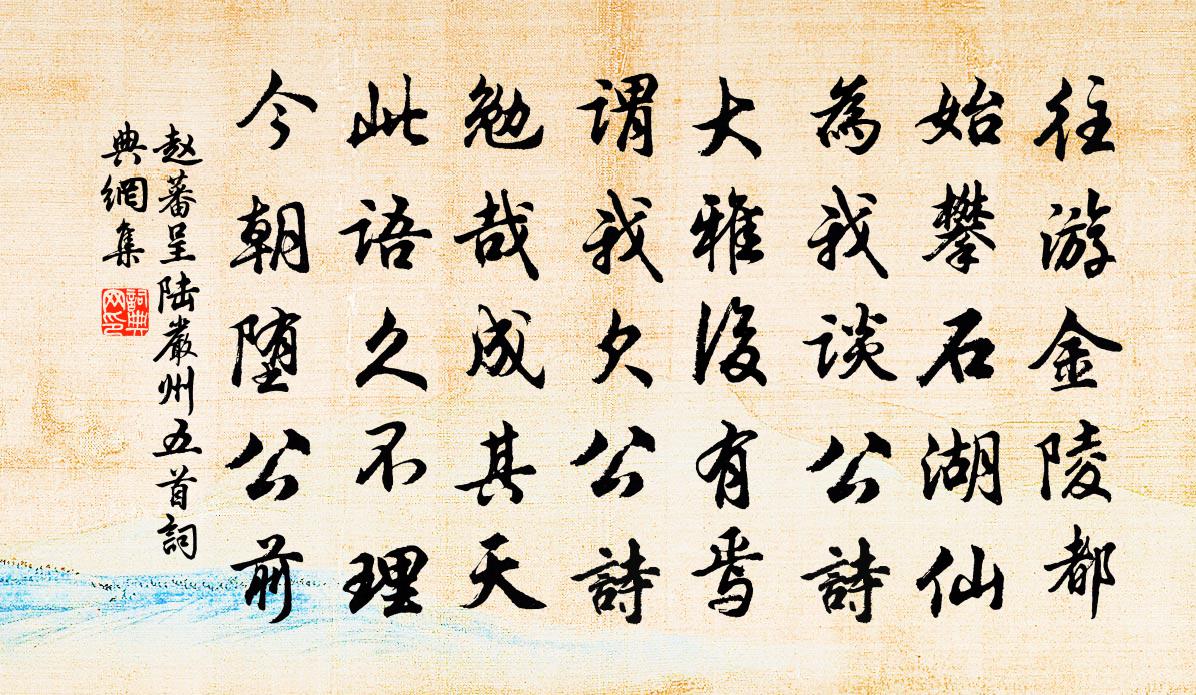 往游金陵都
始攀石湖仙
為我談公詩
大雅復有焉
謂我欠公詩
勉哉成其天
此語久不理
今朝堕公前
赵蕃呈陆嚴州五首詞
典網集
詞典
网印